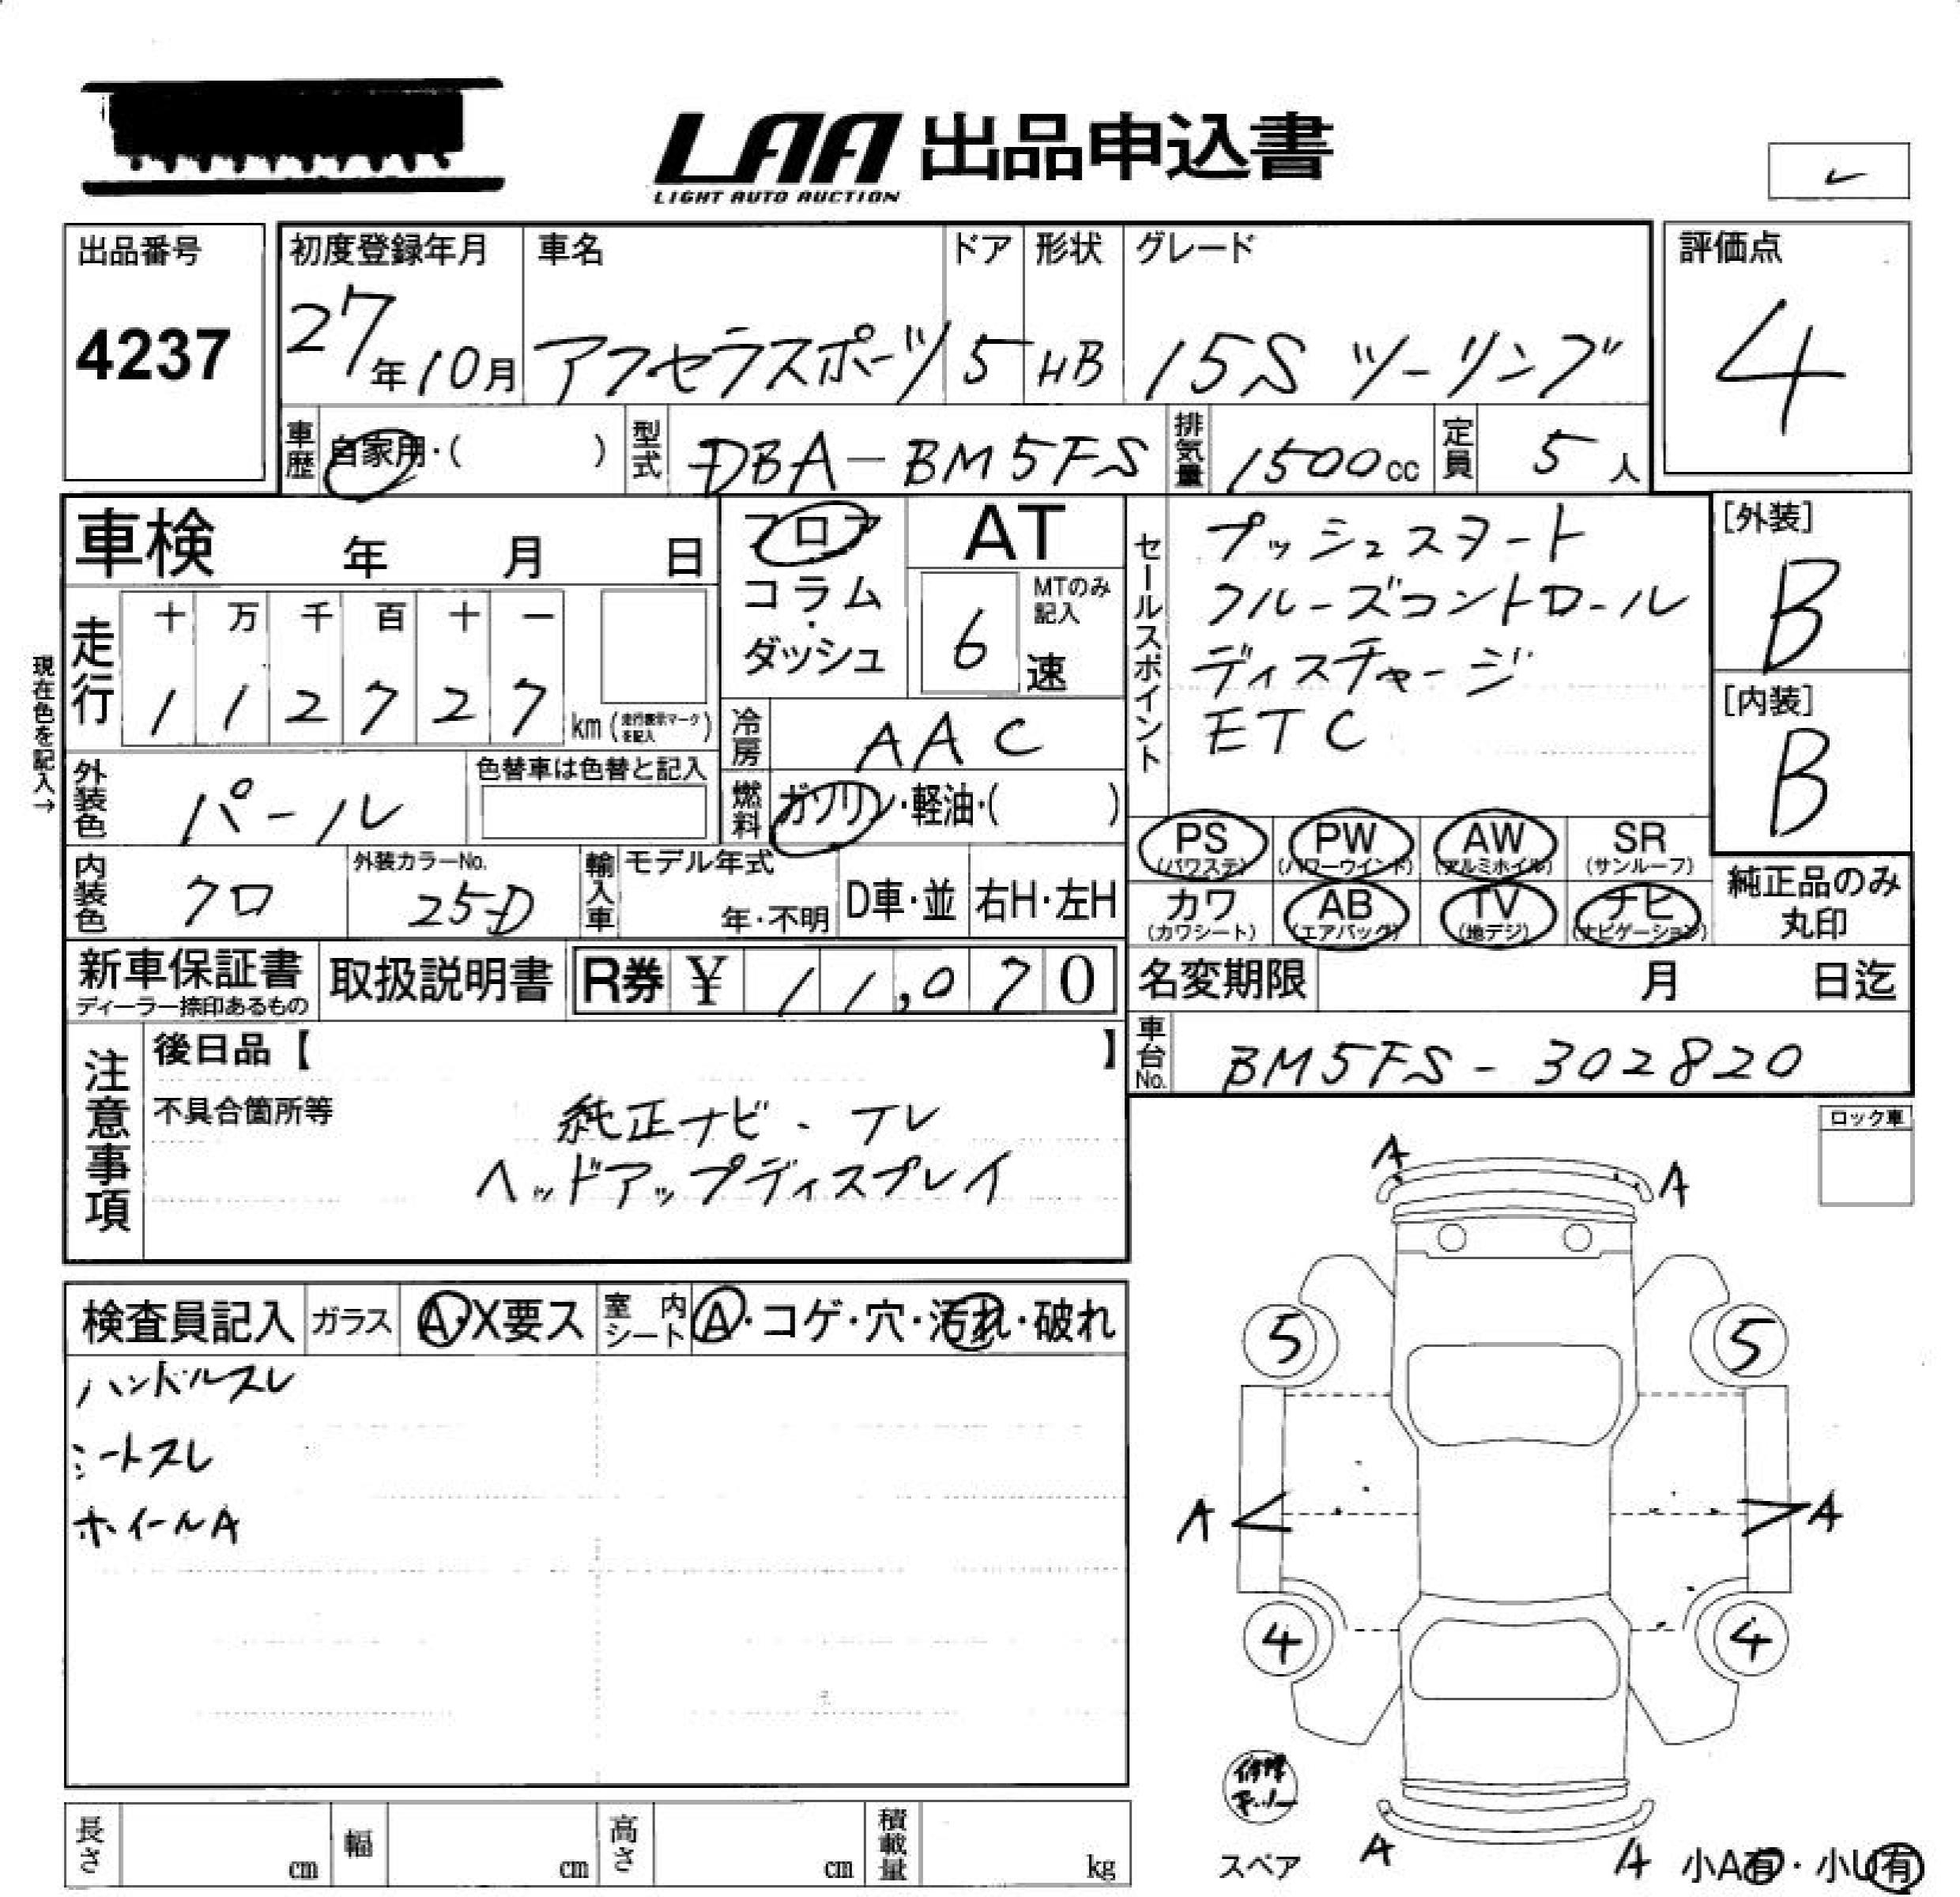 LAA 出品申込書
LIGHT AUTO AUCTION
出品番号
4237
初度登録年月
27年10月
車名
アクセラスポーツ
ドア
5
形状
HB
グレード
15S ツーリング
評価点
4
車歴 自家用・( )
型式 DBA-BM5FS
排気量 1500cc
定員 5人
車検 年 月 日
フロア
コラム・
ダッシュ
AT
MTのみ記入
6速
セールスポイント
プッシュスタート
クルーズコントロール
ディスチャージ
ETC
[外装]
B
[内装]
B
現在色を記入→
走行
十 万 千 百 十 一
1 1 2 7 2 7 km (走行表示マークを記入)
冷房 AAC
外装色 パール
色替車は色替と記入
燃料 ガソリン・軽油・( )
内装色 クロ
外装カラーNo.
25D
輸入車
モデル年式
年・不明
D車・並
右H・左H
PS (パワステ)
PW (パワーウインド)
AW (アルミホイル)
SR (サンルーフ)
カワ (カワシート)
AB (エアバック)
TV (地デジ)
ナビ (ナビゲーション)
純正品のみ
丸印
新車保証書
ディーラー捺印あるもの
取扱説明書
R券 ¥ 11,070
名変期限 月 日迄
車台No. BM5FS-302820
注意事項
後日品【 】
不具合箇所等
純正ナビ・テレ
ヘッドアップディスプレイ
ロック車
検査員記入 ガラス A・X要ス 室内シート A・コゲ・穴・汚れ・破れ
ハンドルスレ
シートスレ
ホイールA
A A
5 5
A A
4 4
修理キット
スペア
A A
小A有・小U有
長さ cm 幅 cm 高さ cm 積載量 kg